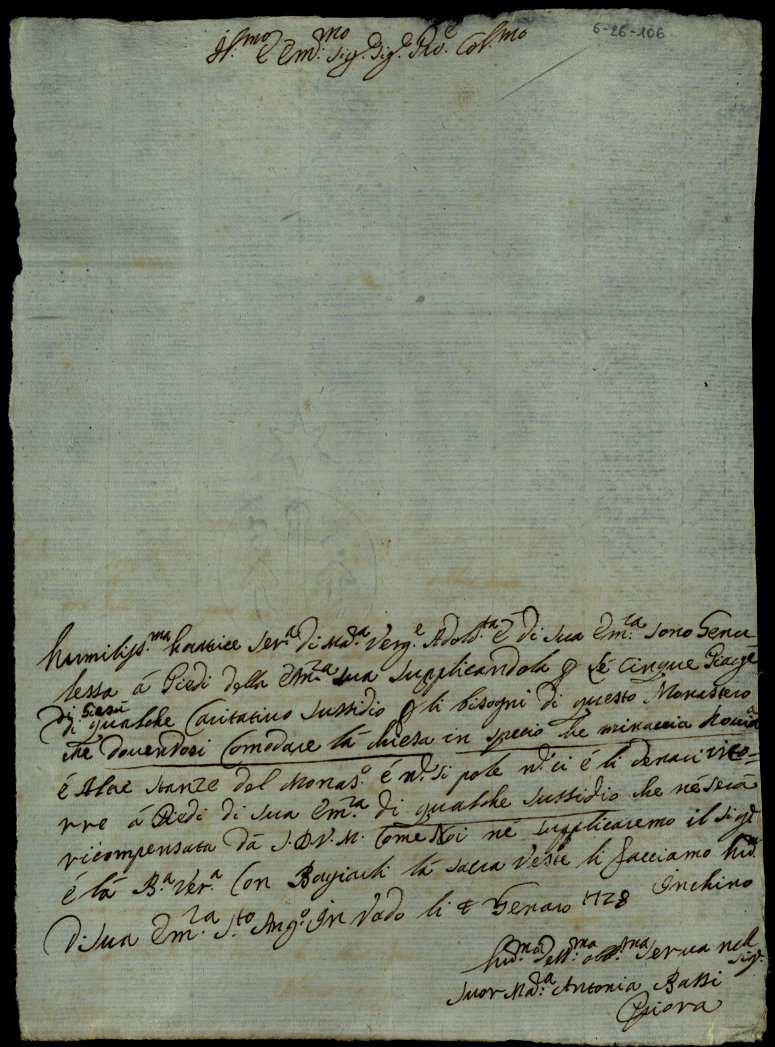 6-26-106
Jl.mo e Em.mo Sig.e Sig.e Pro.e Col.mo
humiliss.ma Ser.a di Ma.a Verg.e Adolo.ta é di Sua Em.za sono Genu
flessa á Piedi della Em.za sua supplicandola p le cinque Piaghe
di Giesù
di qualche Caritativo sussidio p li bisogni di questo Monastero
che douendosi Comodare la chiesa in specie che minaccia Rouina
é Altre stanze del Monas.o é n. si pole n. ci é li denari rico=
rre á Piedi di sua Em.za di qualche sussidio che né será
ricompensata da S.D.V.M. Come Noi né supplicaremo il Sig.e
é la B.a Ver.a Con Bagiarli la sacra Veste li facciamo hu.
Di Sua Em.za S.to Ang.o In Vado li Genaro 1728 Inchino
hu.ma de.ma obb.ma serua nell Sig.e
Suor Ma.a Antonia Bassi
Priora